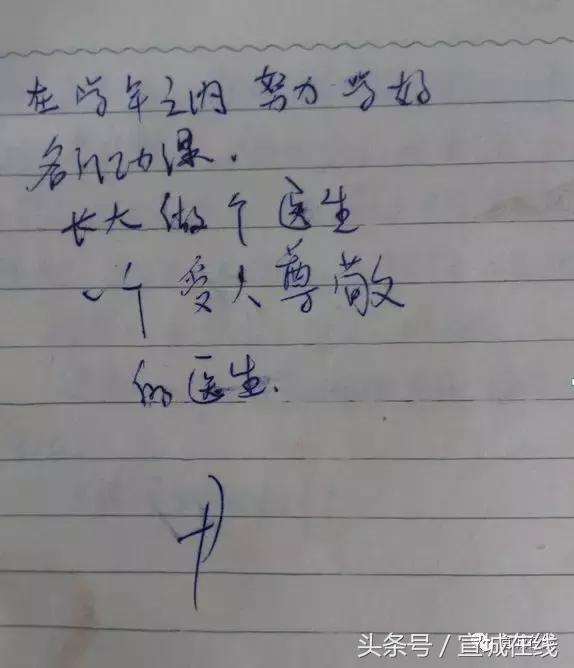 在学年之内 努力学好
各门功课.
长大做个医生
一个受人尊敬
的医生.
头条号／宣城在线